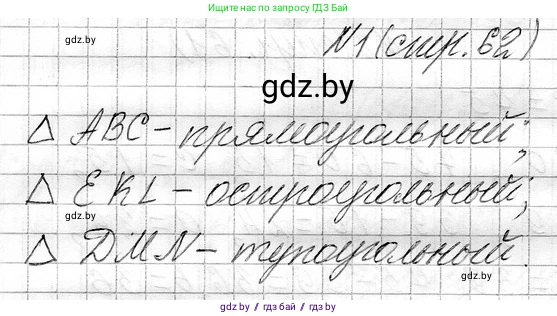 Пишите нам по запросу ГДЗ Бай
gdz.by
№1 (стр. 62)
gdz.by
△ ABC - прямоугольный;
△ EKL - остроугольный;
gdz.by
△ DMN - тупоугольный.
gdz.by
gdz.by / гдз бай / гдз.by